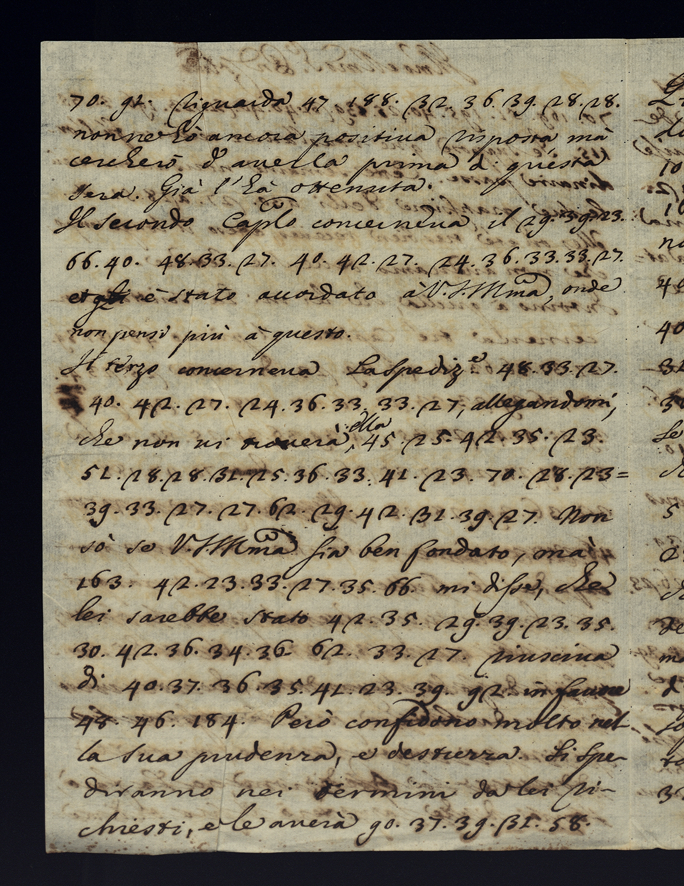 70. 91. riguarda 47 188. 32. 36. 39. 28. 28.
non ne hò ancora positiva risposta mà
cercherò d'averla prima di questa
sera. Già l'hà ottenuta.
Il secondo Caplo concerneva il 29. 39. 23.
66. 40. 48. 33. 27. 40. 42. 27. 24. 36. 33. 33. 27.
è stato accordato a V.S.Illma, onde
non pensi più à questo.
Il terzo concerneva la spedize 48. 33. 27.
40. 42. 27. 24. 36. 33. 33. 27, allegandomi,
che non vi troverà, ella 45. 25. 42. 35. 23.
51. 28. 28. 31. 25. 36. 33. 41. 23. 70. 28. 23=
39. 33. 27. 27. 62. 29. 42. 31. 39. 27. Non
sò se V.S.Illma sia ben fondato, mà
163. 42. 23. 33. 27. 35. 66. mi disse, che
lei sarebbe stato 42. 35. 29. 39. 23. 35.
30. 42. 36. 34. 36. 62. 33. 27. riusciva
di 40. 37. 36. 35. 41. 23. 39. 92. in favore
48. 46. 184. Però confidono molto nel-
la sua prudenza, e destrezza. Si spe-
diranno nei termini da lei ri-
chiesti, e le averà 90. 37. 39. 31. 58.